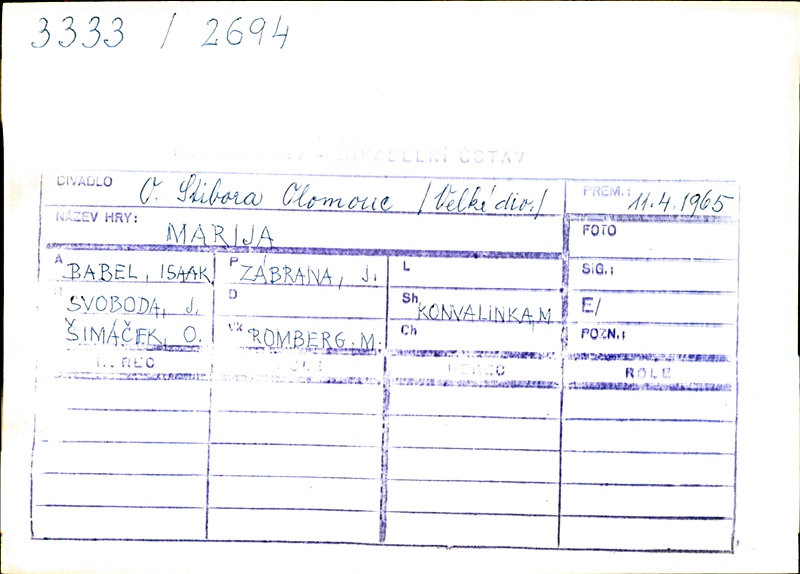 3333 / 2694
DIVADELNÍ ÚSTAV
DIVADLO O. Stibora Olomouc /Velké div./ PREM.: 11.4.1965
NÁZEV HRY: MARIJA FOTO
A BABEL, ISAAK P ZÁBRANA, J. L SIG.:
SVOBODA, J. D Sh KONVALINKA, M. E/
ŠIMÁČEK, O. Vk ROMBERG, M. Ch POZN.:
HEREC ROLE